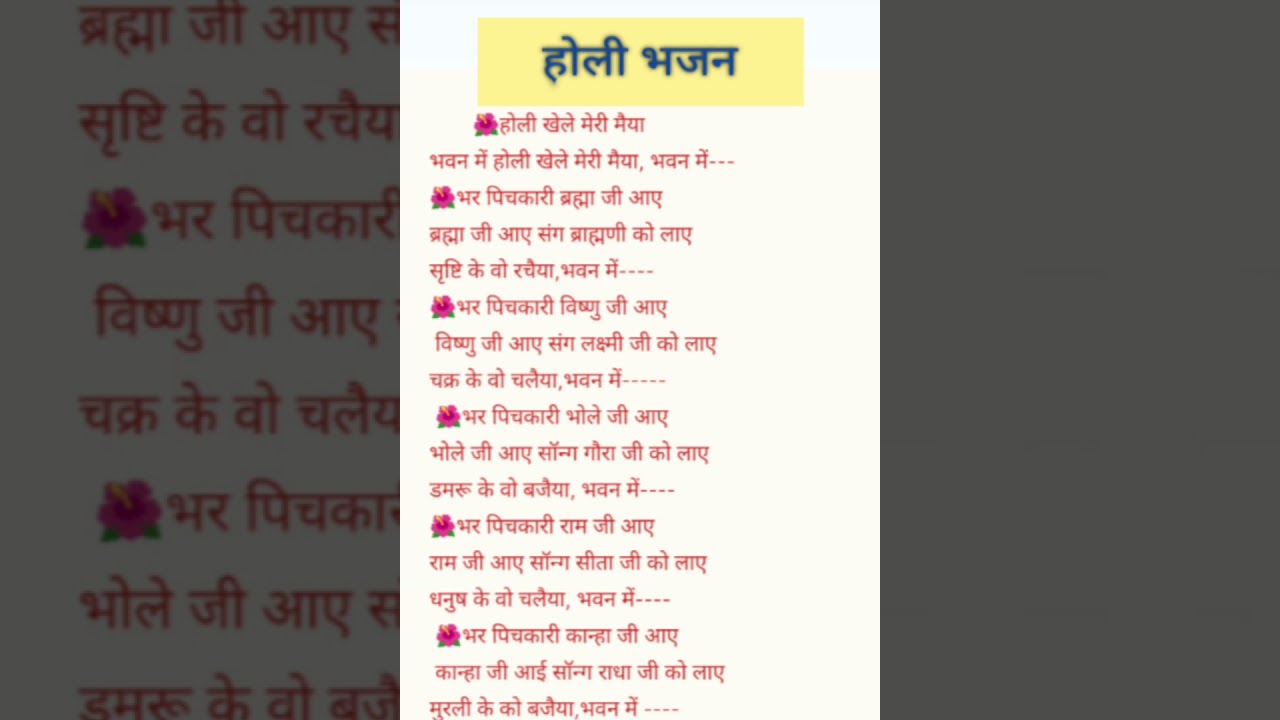 होली भजन
🌺होली खेले मेरी मैया
भवन में होली खेले मेरी मैया, भवन में---
🌺भर पिचकारी ब्रह्मा जी आए
ब्रह्मा जी आए संग ब्राह्मणी को लाए
सृष्टि के वो रचैया,भवन में----
🌺भर पिचकारी विष्णु जी आए
विष्णु जी आए संग लक्ष्मी जी को लाए
चक्र के वो चलैया,भवन में-----
🌺भर पिचकारी भोले जी आए
भोले जी आए सॉन्ग गौरा जी को लाए
डमरू के वो बजैया, भवन में----
🌺भर पिचकारी राम जी आए
राम जी आए सॉन्ग सीता जी को लाए
धनुष के वो चलैया, भवन में----
🌺भर पिचकारी कान्हा जी आए
कान्हा जी आई सॉन्ग राधा जी को लाए
मुरली के को बजैया,भवन में ----